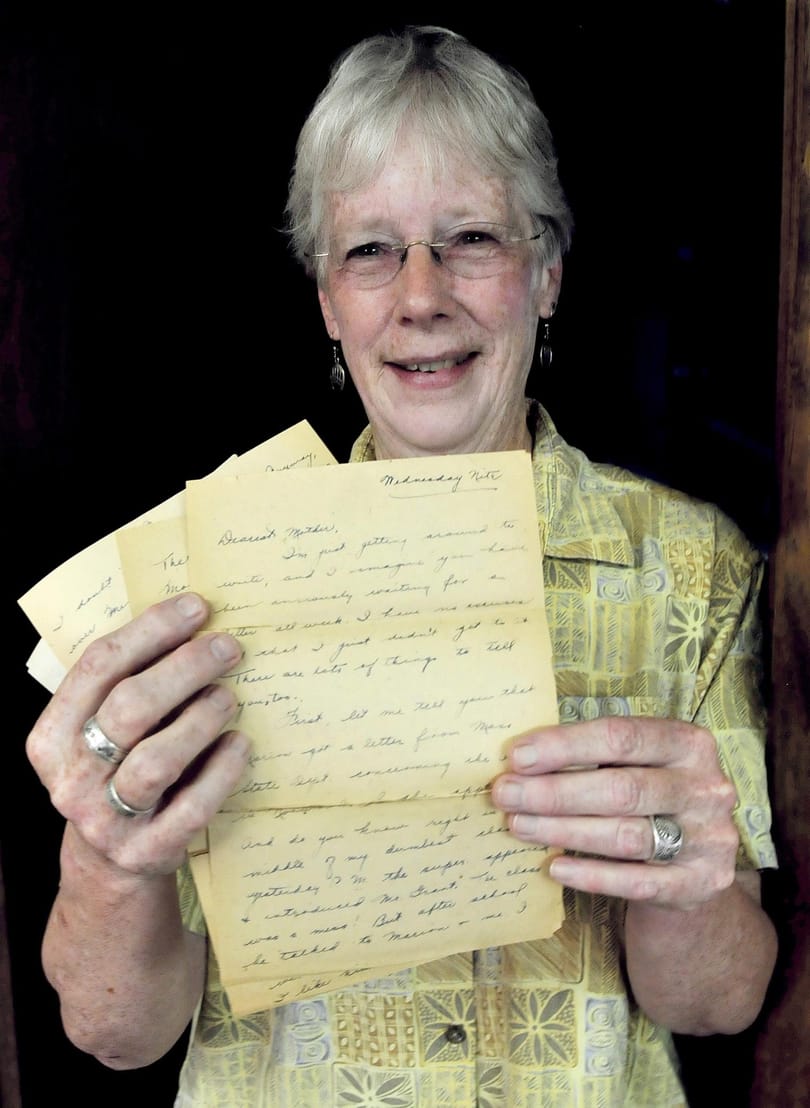 Wednesday Nite
Dearest Mother,
I'm just getting around to
write, and I imagine you have
been anxiously waiting for a
letter all week. I have no excuses
that I just didn't get to it
There are lots of things to tell
you, too.
First, let me tell you that
Marion got a letter from Mass
State Dept concerning the
And do you know right in
middle of my dumbest class
yesterday P M the super. appeared
& introduced Mr Grant. The class
was a mess! But after school
he talked to Marion & me I
I like
I doubt
over Me
The
Mo